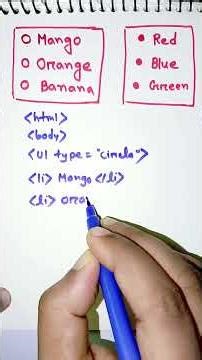 Mango
Orange
Banana
Red
Blue
Green
<html>
<body>
<Ul type = "circle">
<li> Mango </li>
<li> Ora